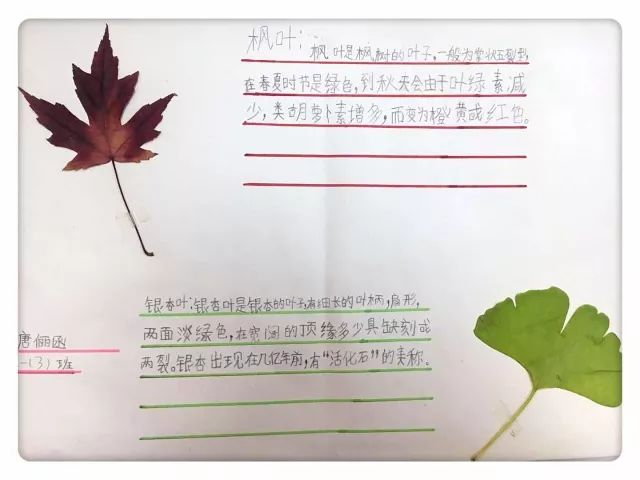 枫叶:枫叶是枫树的叶子,一般为掌状五裂型,
在春夏时节是绿色,到秋天会由于叶绿素减
少,类胡萝卜素增多,而变为橙黄或红色。
银杏叶:银杏叶是银杏的叶子,有细长的叶柄,扇形,
两面淡绿色,在宽阔的顶缘多少具缺刻或
两裂。银杏出现在几亿年前,有“活化石”的美称。
唐俪函
一(3)班